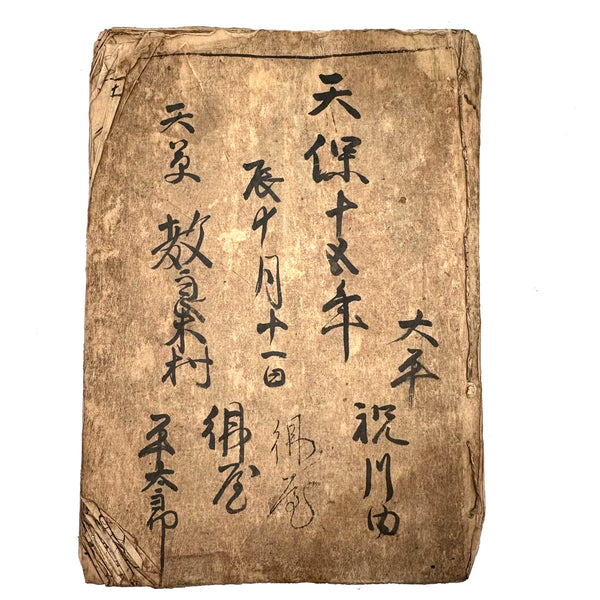 大平 祝川内
天保十五年
辰十月十一日
屋
屋
天草 教良木村
平太郎